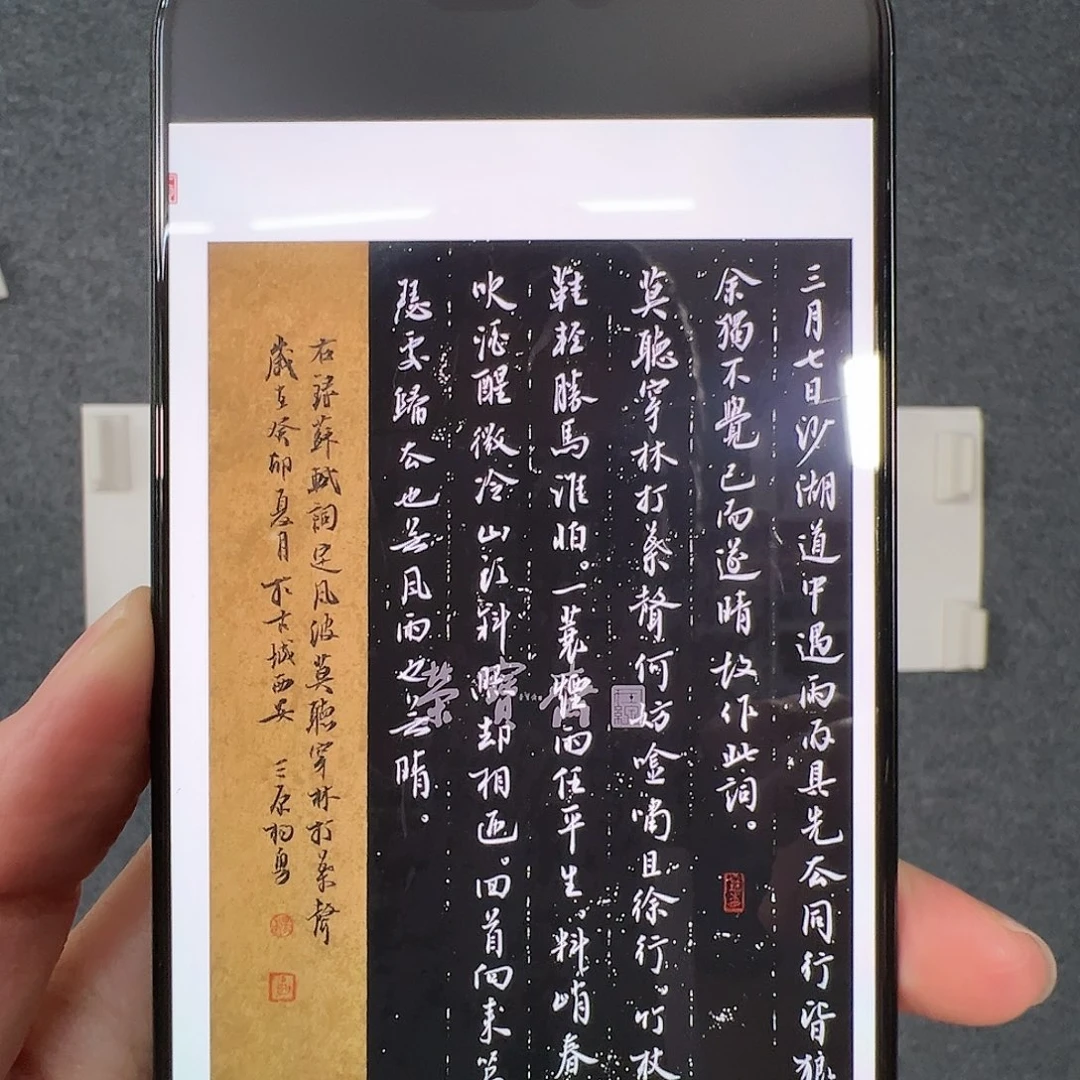 三月七日沙湖道中遇雨雨具先去同行皆狼
余獨不覺已而遂晴故作此詞。
莫聽穿林打葉聲何妨唫嘯且徐行。竹杖
鞋輕勝馬誰怕。一蓑煙雨任平生。料峭春
吹酒醒微冷山頭斜照却相迎。回首向来
處歸去也無風雨也無晴。
右錄蘇軾詞定風波莫聽穿林打葉聲
歲在癸卯夏月於古城西安 三原
榮寶齋